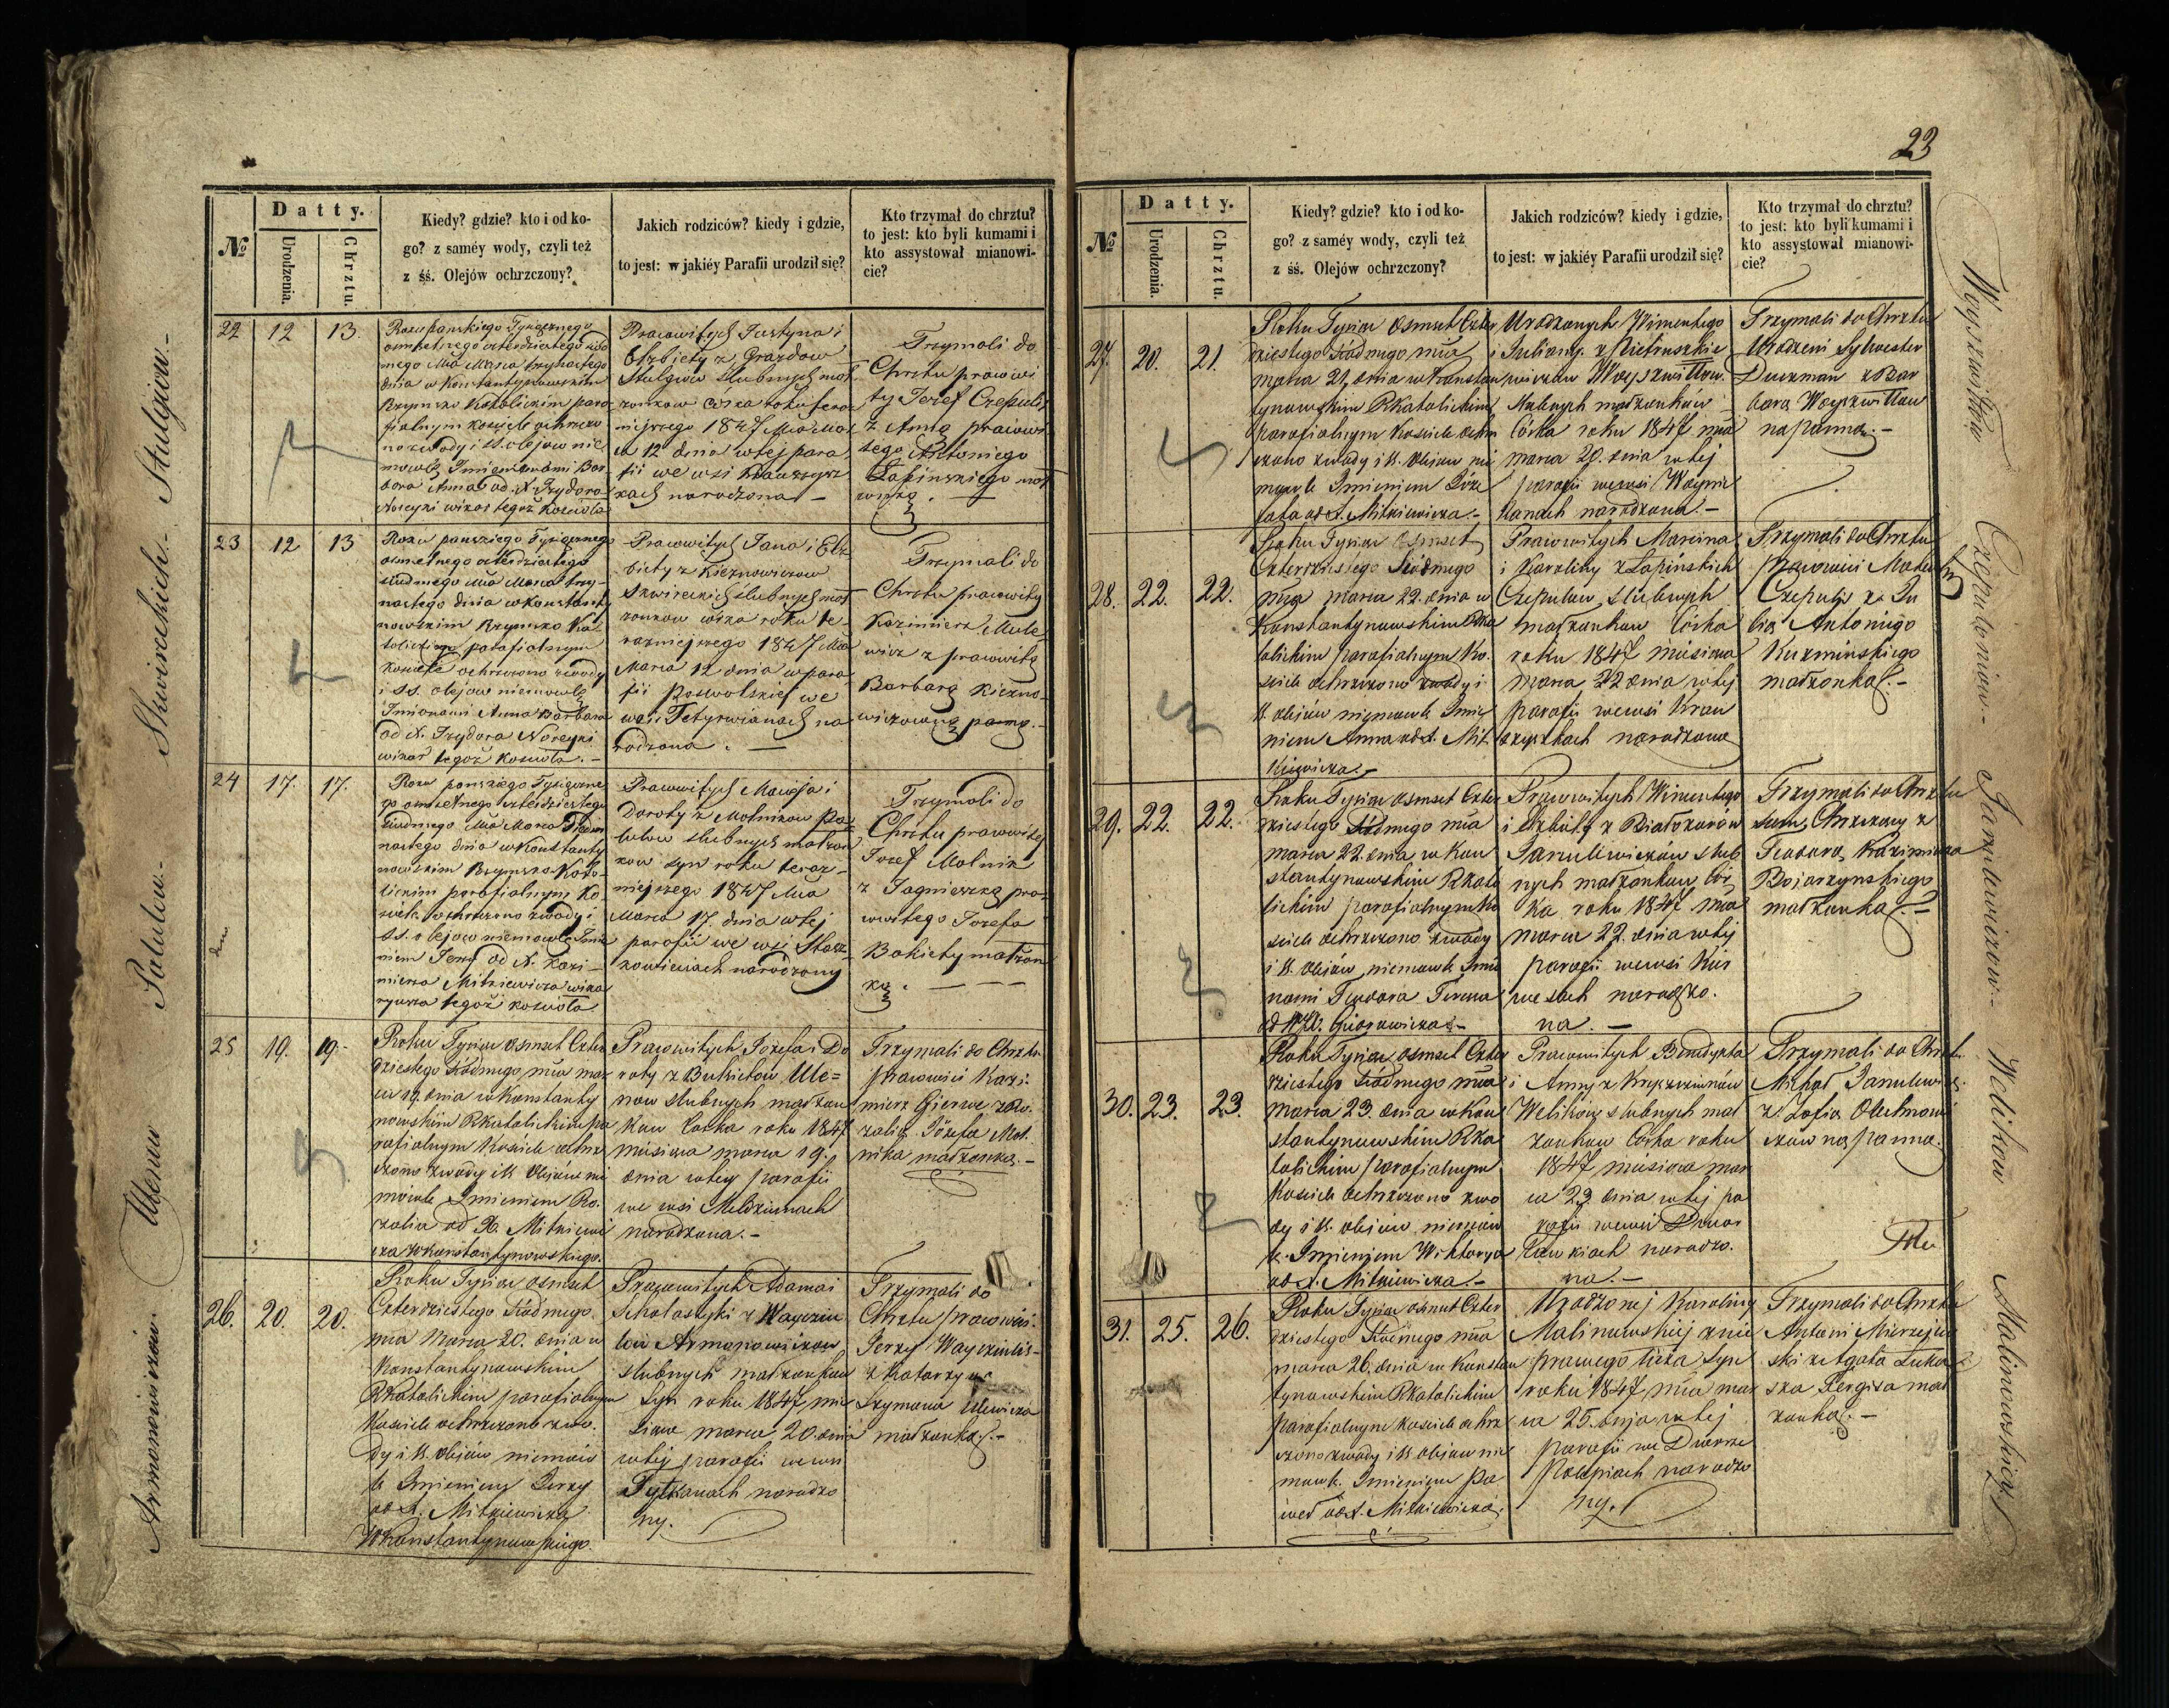 23
№
Datty.
Urodzenia.
Chrztu.
Kiedy? gdzie? kto i od ko-
go? z saméy wody, czyli też
z śś. Olejów ochrzczony?
Jakich rodziców? kiedy i gdzie,
to jest: w jakiéy Parafii urodził się?
Kto trzymał do chrztu?
to jest: kto byli kumami i
kto assystował mianowi-
cie?
22
12
13.
Roku pańskiego Tysiącznego
osmsetnego czterdziestego siód
mego Mca Marca trzynastego
dnia w Konstantynowskim
Rzymsko Katolickim para
fialnym kosciele ochrzczo
no z wody i ss. olejow nie
mowlę Imionami Bar
bara Anna od X. Izydora
Noreyki wikar tegoż Kościoła
Pracowitych Justyna i
Elzbiety z Grazdow
Stulgiow slubnych mał
zonkow córka roku teraz
niejszego 1847 Mca Mar
ca 12 dnia w tej para
fii we wsi
narodzona —
Trzymali do
Chrztu pracowi
ty Jozef Czepulis
z Anną pracowi
tego Antoniego
Łapinskiego mał
żonką. —
23
12
13
Roku pańskiego Tysiącznego
osmsetnego czterdziestego
siódmego Mca Marca trzy-
nastego dnia w Konstanty
nowskim Rzymsko Ka-
tolickim parafialnym
kosciele ochrzczono z wody
i ss. olejow niemowlę
Imionami Anna Barbara
od X. Izydora Noreyki
wikar tegoż Kościoła. —
Pracowitych Jana i Elz
biety z Kieznowiczow
Skwireckich slubnych mał
zonkow córka roku te-
razniejszego 1847 Mca
Marca 12 dnia w para
fii Poswolskiej we
wsi Tetyrwianach na
rodzona. —
Trzymali do
Chrztu pracowity
Kazimierz Mule
wicz z pracowitą
Barbarą Kiezno-
wiczowną panną. —
24
17.
17.
Roku pańskiego Tysiączne
go osmsetnego czterdziestego
siódmego Mca Marca Siedm
nastego dnia w Konstanty
nowskim Rzymsko-Kato-
lickim parafialnym Ko
sciele ochrzczono z wody i
ss. olejow niemowlę Imie
niem Jerzy od X. Kazi-
mierza Mitkiewicza wika
ryusza tegoż kosciola
Pracowitych Macieja i
Doroty z Molnikow Pa
lulow slubnych małżon
kow syn roku teraz-
niejszego 1847 Mca
Marca 17. dnia w tej
parafii we wsi Stacz
kowiciach narodzony
Trzymali do
Chrztu pracowity
Jozef Molnik
z Jagnieszką pra-
cowitego Jozefa
Bokiety małżon
ką. — — —
25
19.
19.
Roku Tysiąc osmset Czter
dziestego Siódmego mca mar
ca 19 dnia w Konstanty
nowskim RKatolickim pa
rafialnym Kościele ochrz
czono z wody i ss. Olejów nie
mowle Imieniem Ro-
zalia od X. Mitkiewi
cza W Konstantynowskiego.
Pracowitych Jozefa i Do
roty z Bukietow Ule=
now slubnych małżon
kow Corka roku 1847
miesiąca marca 19.
dnia w tey parafii
we wsi Meldziunach
narodzona. —
Trzymali do Chrztu
pracowici Kazi-
mierz Gierwe z Ro-
zalią Józefa Mol-
nika małżonką. —
26.
20.
20.
Roku Tysiąc osmset
Czterdziestego Siódmego
mca Marca 20. dnia w
Konstantynowskim
RKatolickim parafialnym
Kościele ochrzczono z wo-
dy i ss. olejów niemow
le Imieniem Jerzy
od X. Mitkiewicza
W Konstantynowskiego.
Pracowitych Adama i
Scholastyki z Wayciu
low Armonowiczow
slubnych małżonkow
Syn roku 1847, mie
siąca marca 20. dnia
w tej parafii we wsi
Tytkanach narodzo
ny.
Trzymali do
Chrztu pracowici
Jerzy Wayciulis-
z Katarzyną
Szymona Ulewicza
małżonką. —
Armonowiczow. Ulenow Palulow. Skwireckich. Stulgiow.
№
Datty.
Urodzenia.
Chrztu.
Kiedy? gdzie? kto i od ko-
go? z saméy wody, czyli też
z śś. Olejów ochrzczony?
Jakich rodziców? kiedy i gdzie,
to jest: w jakiéy Parafii urodził się?
Kto trzymał do chrztu?
to jest: kto byli kumami i
kto assystował mianowi-
cie?
27.
20.
21.
Roku Tysiąc Osmset Czter
dziestego Siódmego mca
marca 21 dnia w Konstan
tynowskim RKatolickim
parafialnym Kościele ochrz
czono z wody i ss. Olejow nie
mowle Imieniem Józe
fata od X. Mitkiewicza. —
Urodzonych Wincentego
i Julianny z Pietruszkie
wiczow Woyszwiłłow.
slubnych małżonków
Córka roku 1847 mca
marca 20. dnia w tej
parafii we wsi Woynie
kanach narodzona. —
Trzymali do Chrztu
Urodzeni Sylwester
Duczman z Bar
barą Woyszwiłłow
ną panną. —
28.
22.
22.
Roku Tysiąc Osmset
Czterdziestego Siódmego
mca marca 22. dnia w
Konstantynowskim RKa
tolickim parafialnym Ko-
sciele ochrzczono z wody i
ss. olejów niemowle Imie
niem Anna od X. Mit
kiewicza. —
Pracowitych Marcina
i Karoliny z Łapińskich
Czepulow slubnych
małżonkow Córka
roku 1847 miesiąca
marca 22 dnia w tej
parafii we wsi Krau
czyszkach narodzona
Trzymali do Chrztu
pracowici Mateusz
Czepulis z Ju
lią Antoniego
Kuzminskiego
małżonką. —
29.
22.
22.
Roku Tysiąc Osmset Czter
dziestego Siódmego mca
marca 22. dnia w Kon
stantynowskim RKato
lickim parafialnym Ko
sciele ochrzczono z wody
i ss. olejów niemowle Imio
nami Teodora Teressa
od X. Giedrowicza. —
Pracowitych Wincentego
i Elzbiety z Białozorów
Janulewiczów slub
nych małżonkow Cór
ka roku 1847 mca
marca 22. dnia w tej
parafii we wsi Kir
narodzo-
na. —
Trzymali do Chrztu
z
Teodorą Kazimierza
Bojarzynskiego
małżonką. —
30.
23.
23.
Roku Tysiąc osmset Czter
dziestego Siódmego mca
marca 23. dnia w Kon
stantynowskim RKa
tolickim parafialnym
Kościele ochrzczono z wo
dy i ss. olejów niemow
le Imieniem Wiktorya
od X. Mitkiewicza. —
Pracowitych Benedykta
i Anny z
Welikow slubnych mał
zonkow Córka roku
1847 miesiąca mar
ca 23 dnia w tej pa
rafii we wsi
narodzo-
na. —
Trzymali do Chrztu
Michał Janulewicz
z Zofią Olechnowi
czowną panną.
31.
25.
26.
Roku Tysiąc osmset Czter
dziestego Siódmego mca
marca 26. dnia w Konstan
tynowskim RKatolickim
parafialnym Kościele ochrz
czono z wody i ss. olejow nie
mowle. Imieniem Pa
weł od X. Mitkiewicza.
Urodzonej Karoliny
Malinowskiej z nie
prawego łoża Syn
roku 1847, mca mar
ca 25. dnia w tej
parafii we Dworze
Polepiach narodzo
ny.
Trzymali do Chrztu
Antoni Mierzejew
ski z Agatą Łuka
sza mał
zonką. —
Woyszwiłłow Czepuloniow. Janulewiczow. Welikow Malinowskiey